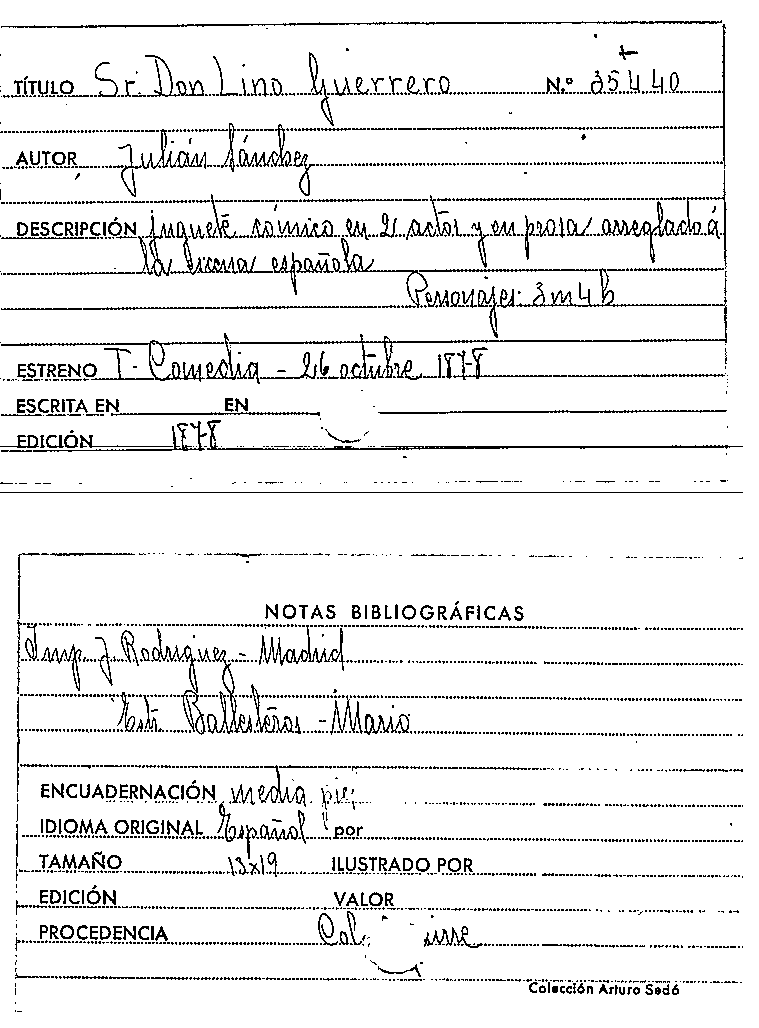 TÍTULO Sr. Don Lino Guerrero N.º 35440
AUTOR Julián Sánchez
DESCRIPCIÓN juguete cómico en 2 actos y en prosa arreglado á
la escena española
Personajes: 3 m 4 h
ESTRENO T. Comedia - 26 octubre 1878
ESCRITA EN EN
EDICIÓN 1878
NOTAS BIBLIOGRÁFICAS
Imp. J. Rodriguez - Madrid
Estr. Ballesteros - Mario
ENCUADERNACIÓN media
IDIOMA ORIGINAL Español por
TAMAÑO 13x19 ILUSTRADO POR
EDICIÓN VALOR
PROCEDENCIA Col.
Colección Arturo Sedó